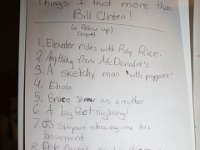 Things I trust more than
Bill Clinton!
(a follow up)
1. Elevator rides with Ray Rice.
2. Anything from McDonald's
3. A sketchy man "with puppies"
4. Ebola
5. Bruce Jenner as a mother
6. A bigfoot sighting!
7. OJ Simpson showing me his
basement
8.